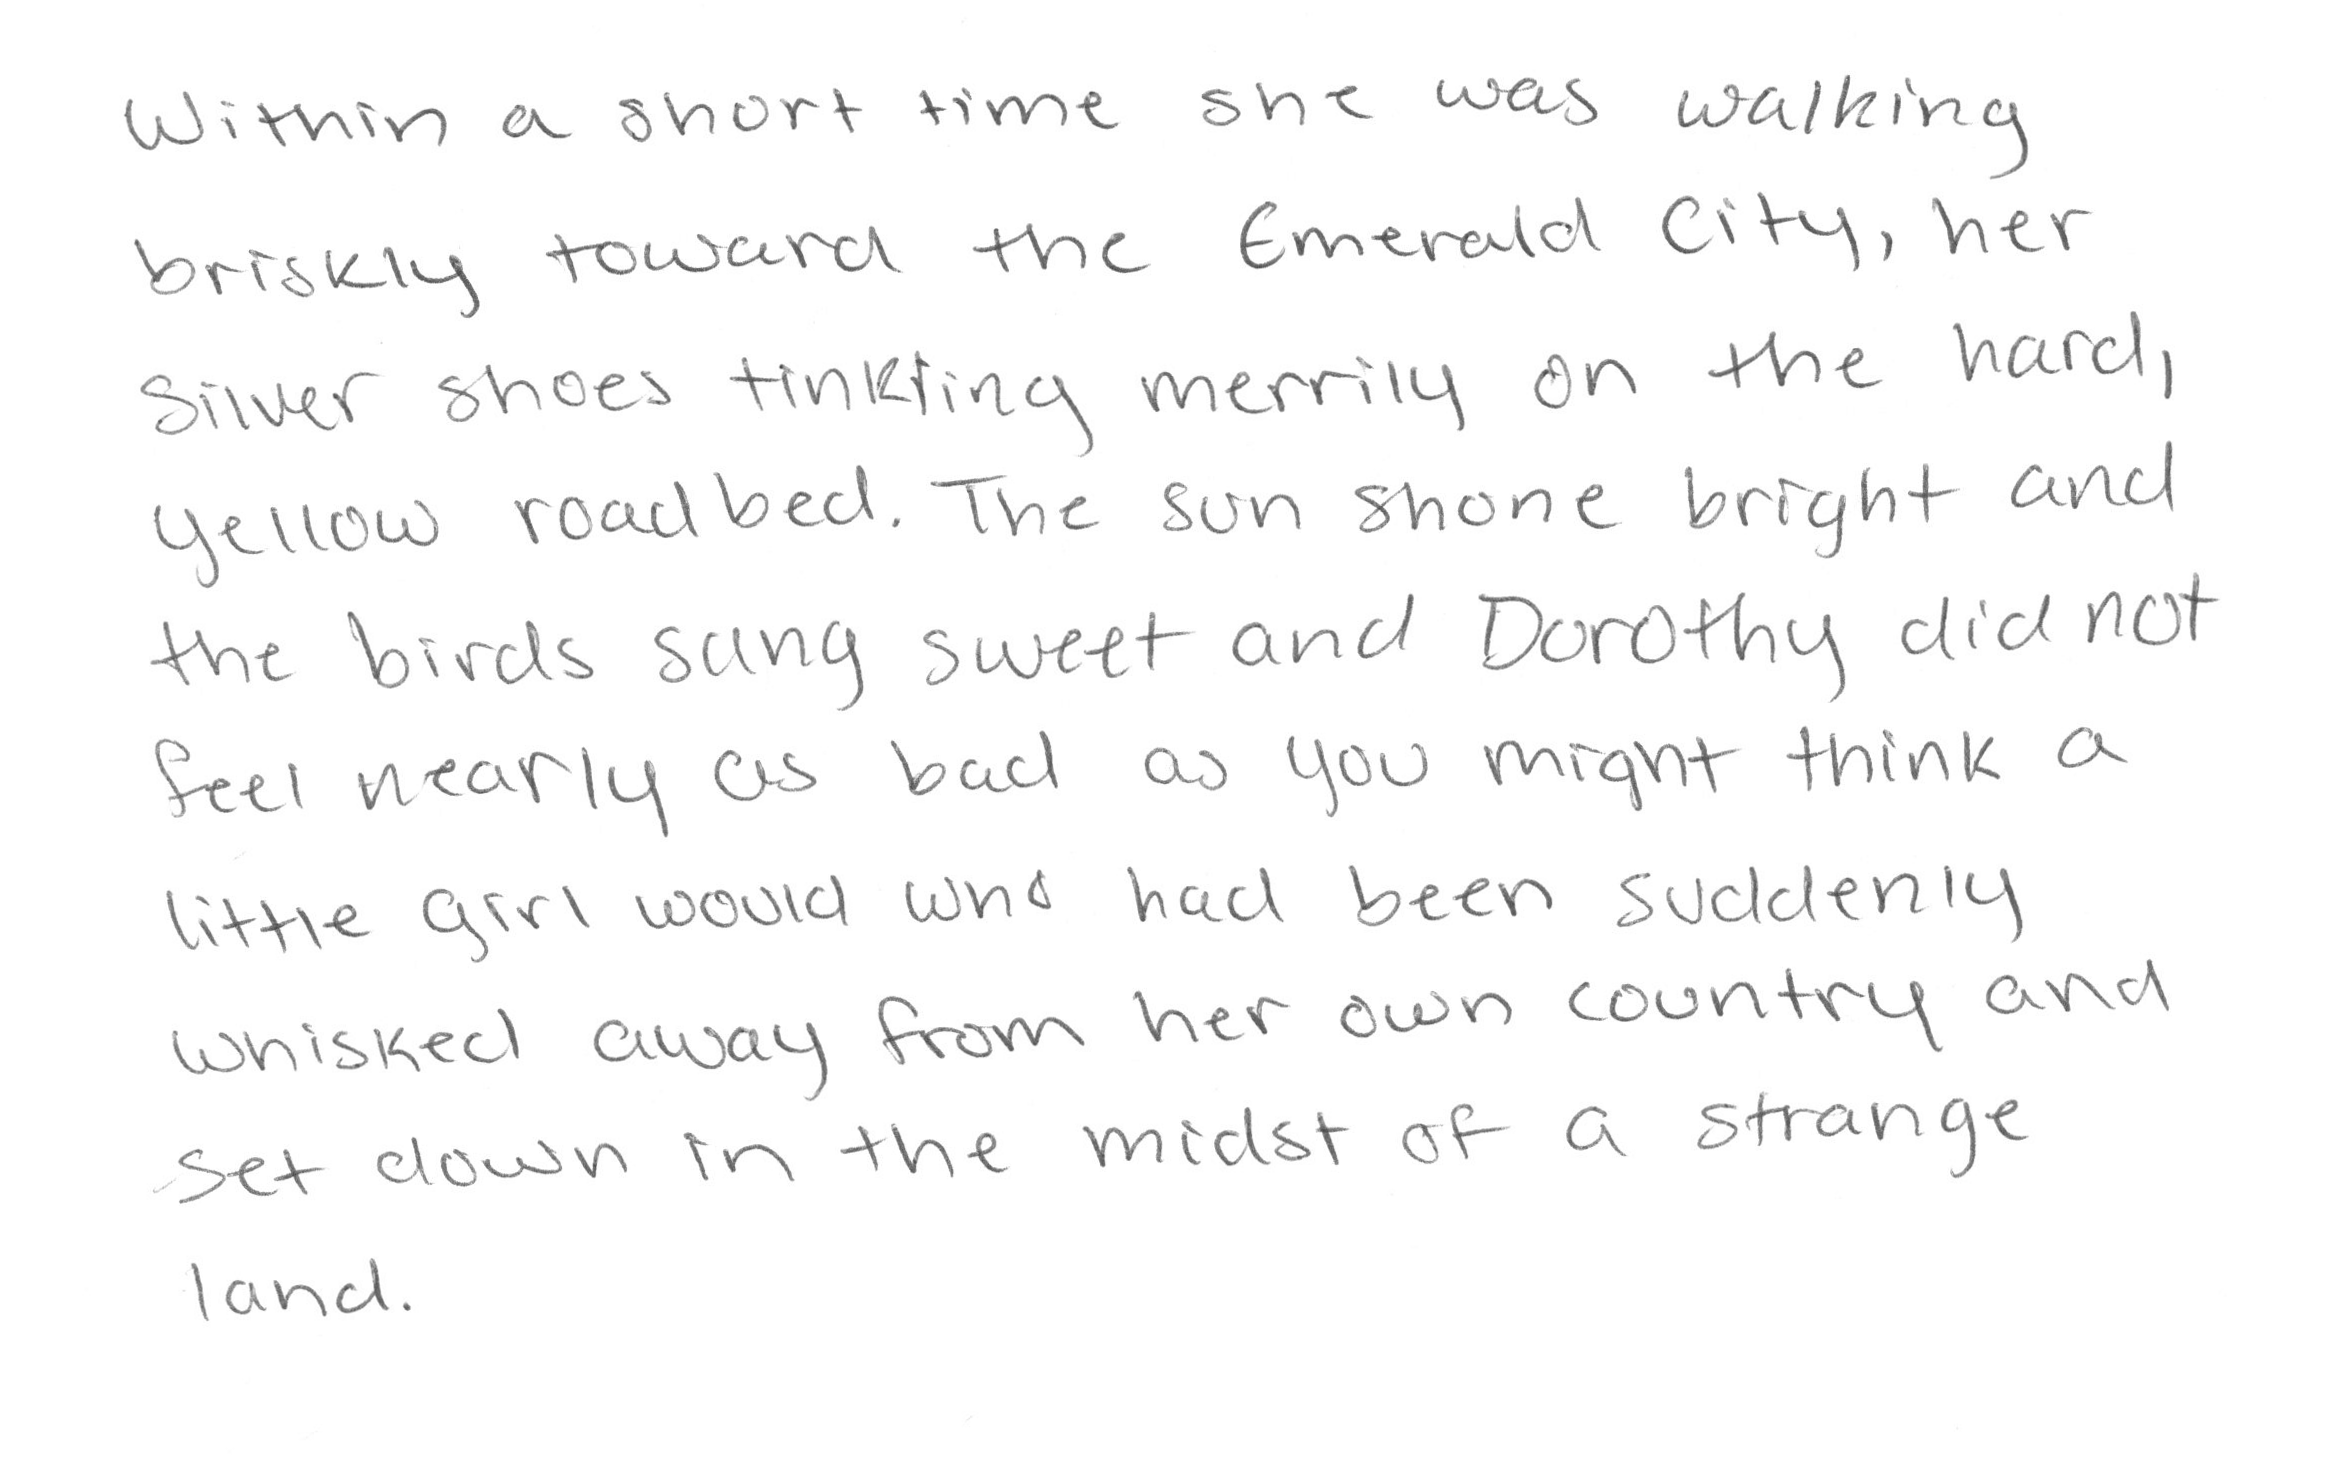 Within a short time she was walking
briskly toward the Emerald City, her
Silver shoes tinkling merrily on the hard,
yellow roadbed. The sun shone bright and
the birds sang sweet and Dorothy did not
feel nearly as bad as you might think a
little girl would who had been suddenly
whisked away from her own country and
set down in the midst of a strange
land.